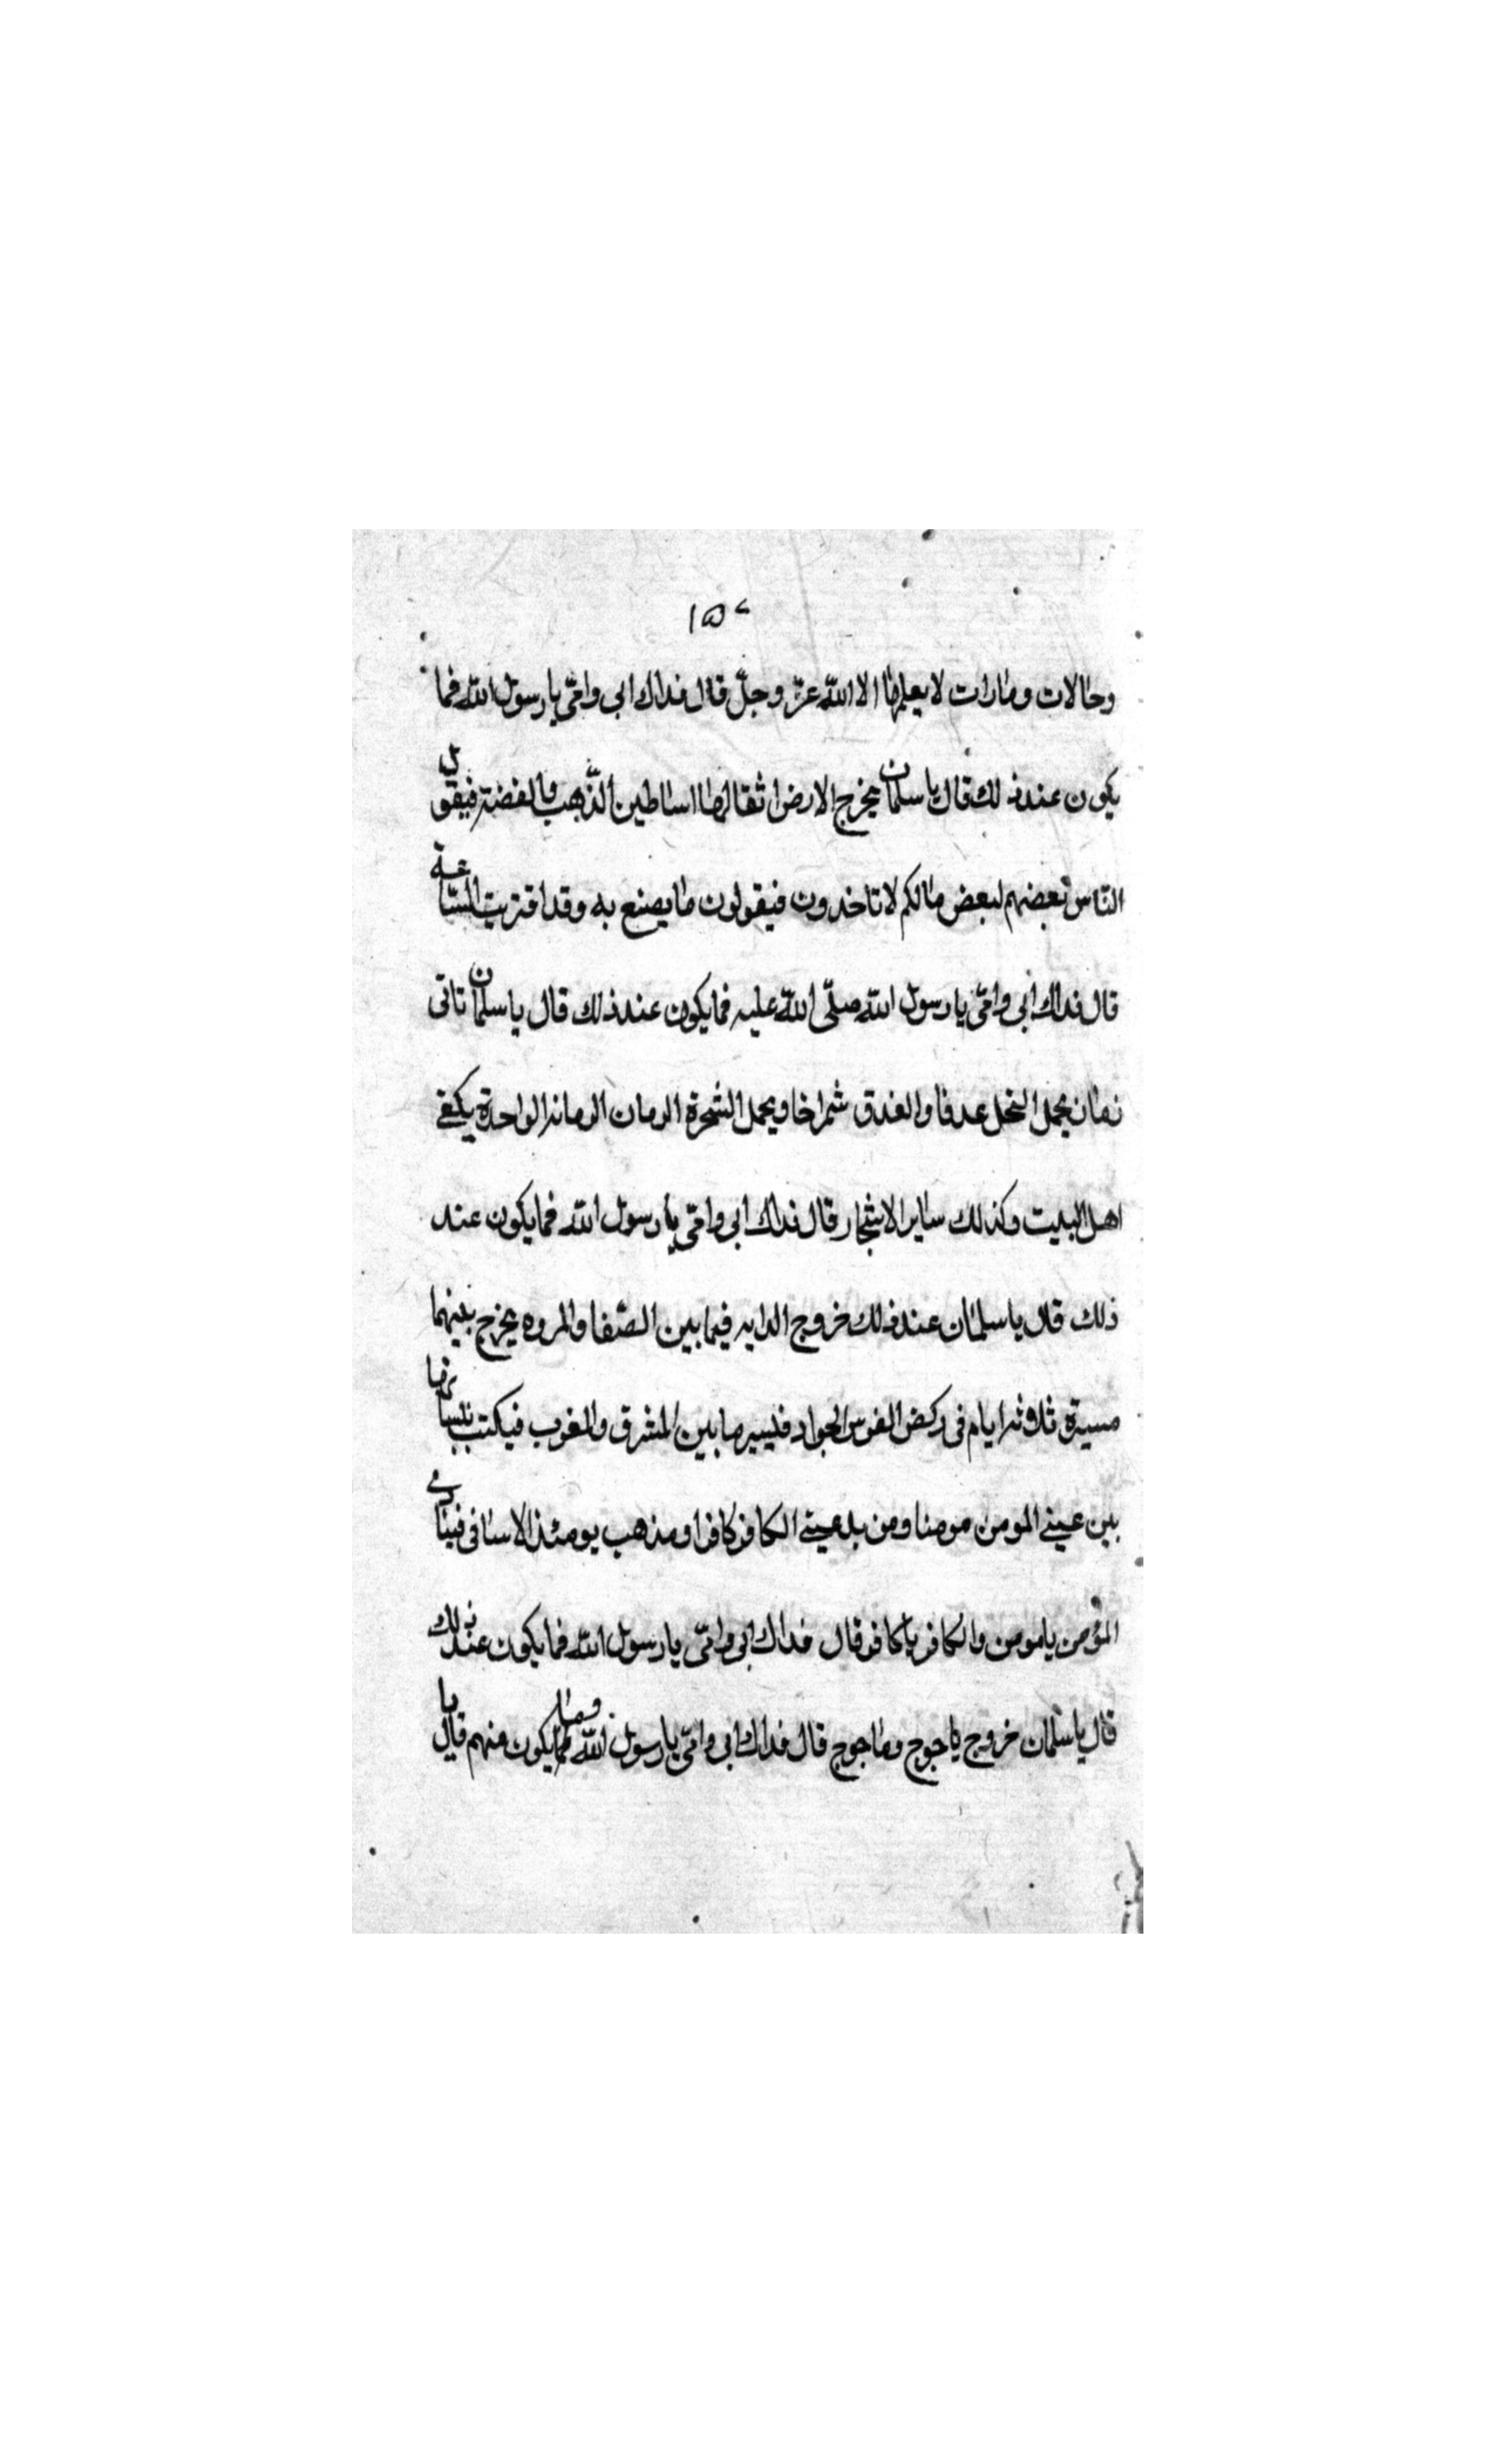 ١٥٤
وحالات ومارات لا يعلمها الا الله عزّ وجلّ قال فداك ابى وامّى يا رسول الله فما
يكون عند ذلك قال يا سلمان يخرج الارض اثقالها اساطين الذّهب والفضة فيقول
النّاس بعضهم لبعض مالكم لا تاخدون فيقولون ما يصنع به وقد اقتربت السّاعة
قال فداك ابى وامّى يا رسول الله صلّى الله عليه فما يكون عند ذلك قال يا سلمان تاتى
زمان يحمل النخل عدقا والغدق شمراخا ويحمل الشجرة الرمان الرمانه الواحدة يكفى
اهل البيت وكذلك ساير الاشجار قال فداك ابى وامّى يا رسول الله فما يكون عند
ذلك قال يا سلمان عند ذلك خروج الدابه فيما بين الصّفا والمروه يخرج بينهما
مسيرة ثلاثه ايام فى ركض الفرس الجواد فيسير ما بين المشرق والمغرب فيكتب
بين عينى المومن مومنا ومن بين عينى الكافر كافرا ومذهب يومئذ الاسافى فينادى
المؤمن يا مومن والكافر يا كافر قال فداك ابى وامّى يا رسول الله فما يكون عند ذلك
قال يا سلمان خروج ياجوج وماجوج قال فداك ابى وامّى يا رسول الله فما يكون منهم قال يا